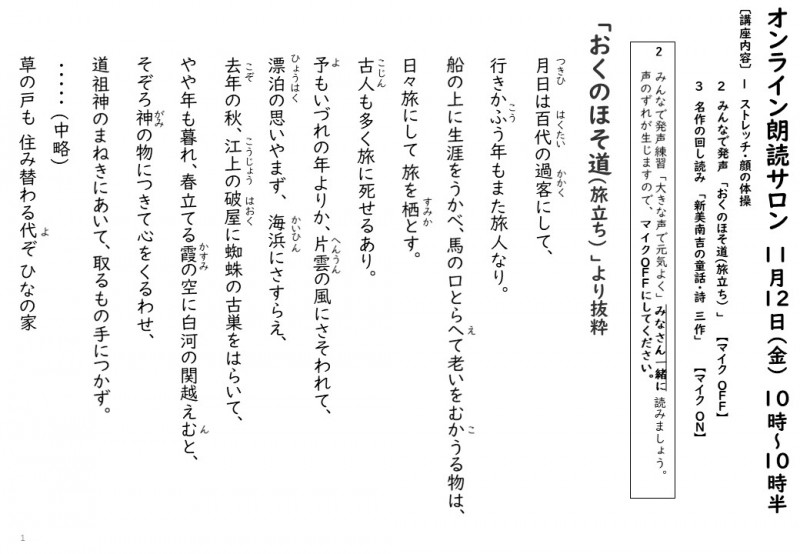 オンライン朗読サロン 11月12日(金) 10時～10時半
[講座内容] 1 ストレッチ・顔の体操
2 みんなで発声 「おくのほそ道(旅立ち)」 【マイク OFF】
3 名作の回し読み 「新美南吉の童話・詩 三作」 【マイク ON】
2 みんなで発声練習「大きな声で元気よく」みなさん一緒に 読みましょう。
声のずれが生じますので、マイクOFFにしてください。
「おくのほそ道(旅立ち)」より抜粋
月日(つきひ)は百代(はくたい)の過客(かかく)にして、
行きかふ(こう)年もまた旅人なり。
船の上に生涯をうかべ、馬の口とらへ(え)て老いをむかう(こ)る物は、
日々旅にして 旅を栖(すみか)とす。
古人(こじん)も多く旅に死せるあり。
予(よ)もいづれの年よりか、片雲(へんうん)の風にさそわれて、
漂泊(ひょうはく)の思いやまず、 海浜(かいひん)にさすらえ、
去年(こぞ)の秋、江上(こうじょう)の破屋(はおく)に蜘蛛の古巣をはらいて、
やや年も暮れ、春立てる霞(かすみ)の空に白河の関越えむ(ん)と、
そぞろ神(がみ)の物につきて心をくるわせ、
道祖神のまねきにあいて、取るもの手につかず。
・・・・・(中略)
草の戸も 住み替わる代(よ)ぞ ひなの家
1